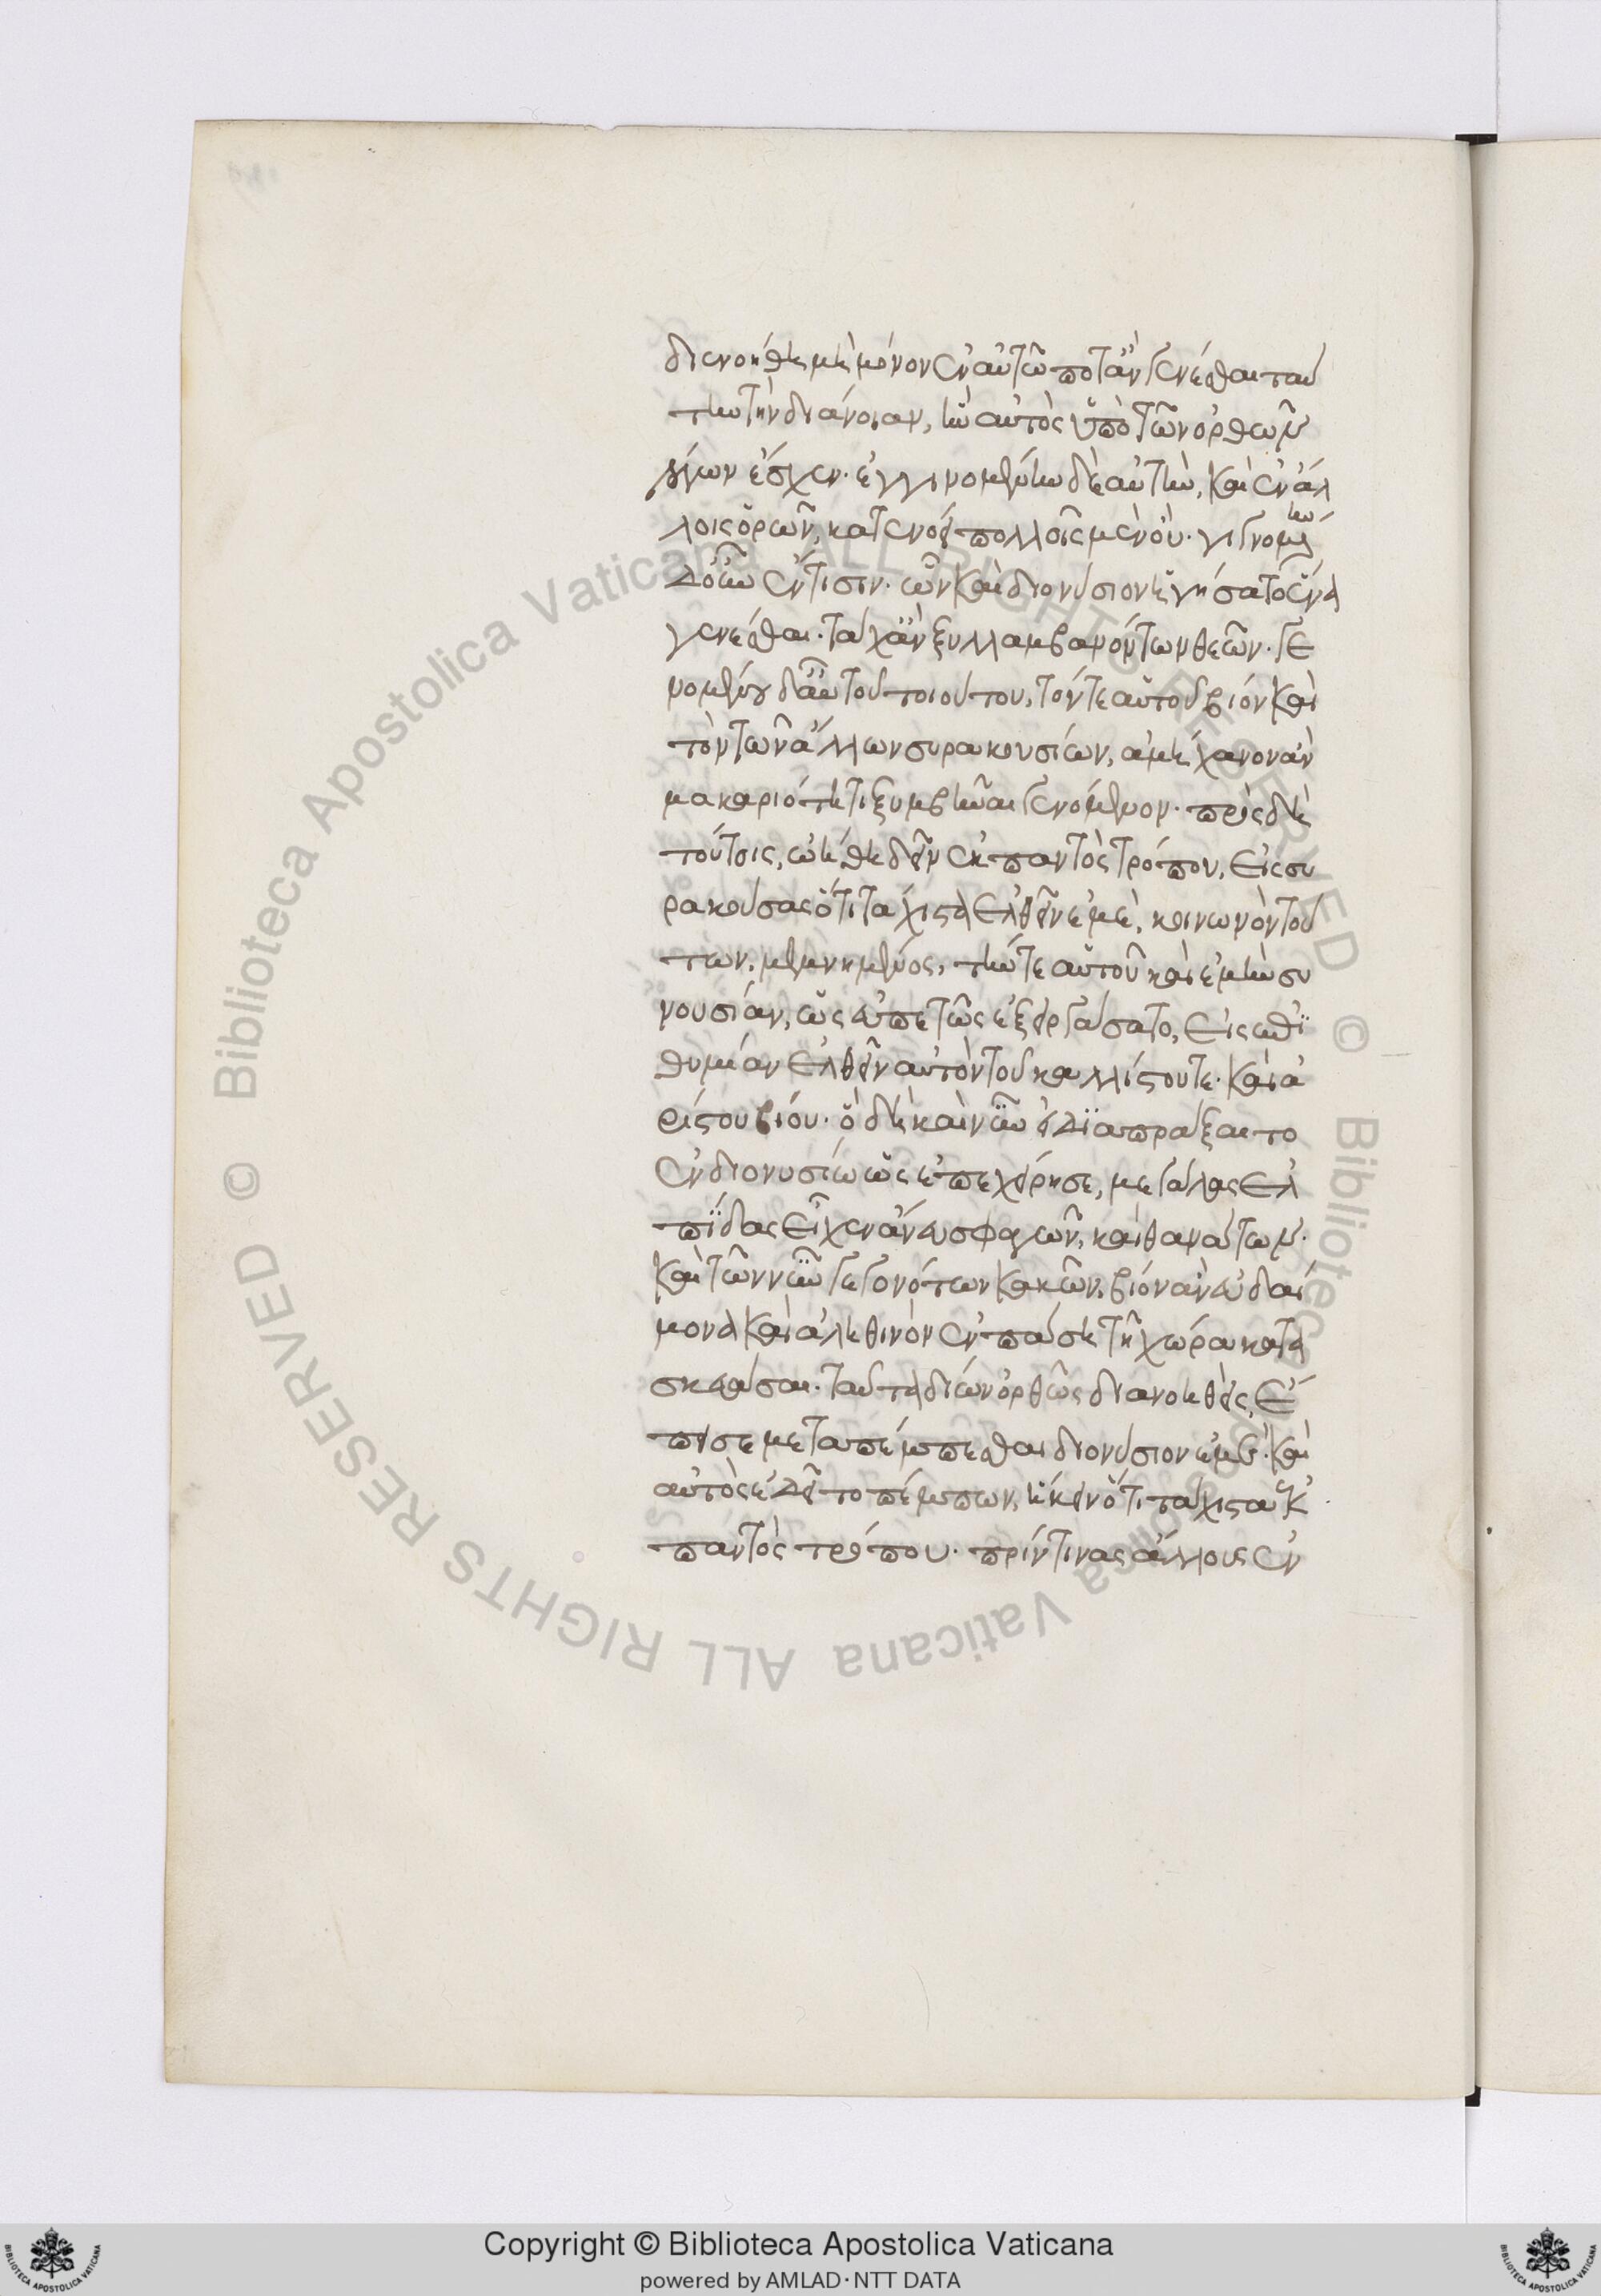 διενοήθη μὴ μόνον ἐν αὑτῶ ποτ' ἂν γενέσθαι ταύ
την τὴν διάνοιαν, ἣν αὐτὸς ὑπὸ τῶν ὀρθῶν
λόγων ἔσχεν· ἐγγινομένην δὲ αὐτὴν, καὶ ἐν ἄλ
λοις ὁρῶν, κατενόει πολλοῖς μὲν οὔ· γιγνομένην
δ' οὖν ἔν τισιν· ὧν καὶ διονύσιον ἡγήσατο ἕνα
γενέσθαι· τάχ' ἂν ξυλλαμβανόντων θεῶν· γε
νομένου δ' ἂν τοῦ τοιούτου, τόν τε αὑτοῦ βίον καὶ
τὸν τῶν ἄλλων συρακουσίων, ἀμήχανον ἂν
μακαριότητι ξυμβῆναι γενόμενον· πρὸς δὴ
τούτοις, ὠήθη δεῖν ἐκ παντὸς τρόπου, εἰς συ
ρακούσας ὅτι τάχιστα ἐλθεῖν ἐμὲ, κοινωνὸν τού
των, μεμνημένος, τήν τε αὑτοῦ καὶ ἐμὴν συ
νουσίαν, ὡς εὐπετῶς ἐξειργάσατο, εἰς ἐπι
θυμίαν ἐλθεῖν αὐτὸν τοῦ καλλίστου τε· καὶ ἀ
ρίστου βίου· ὃ δὴ καὶ νῦν εἰ διαπράξαιτο
ἐν διονυσίω ὡς ἐπεχείρησε, μεγάλας ἐλ
πίδας εἶχεν ἄνευ σφαγῶν, καὶ θανάτων·
καὶ τῶν νῦν γεγονότων κακῶν, βίον ἂν εὐδαί
μονα καὶ ἀληθινὸν ἐν πάση τῆ χώρα κατα
σκευάσαι· ταῦτα δίων ὀρθῶς διανοηθεὶς, ἔ
πεισε μεταπέμπεσθαι διονύσιον ἐμέ· καὶ
αὐτὸς ἐδεῖτο πέμπων, ἥκειν ὅτι τάχιστα ἐκ
παντὸς τρόπου· πρίν τινας ἄλλους ἐν
© Biblioteca Apostolica Vaticana ALL RIGHTS RESERVED © Biblioteca Apostolica Vaticana ALL RIGHTS RESERVED
Copyright © Biblioteca Apostolica Vaticana
powered by AMLAD·NTT DATA
BIBLIOTECA APOSTOLICA VATICANA
BIBLIOTECA APOSTOLICA VATICANA